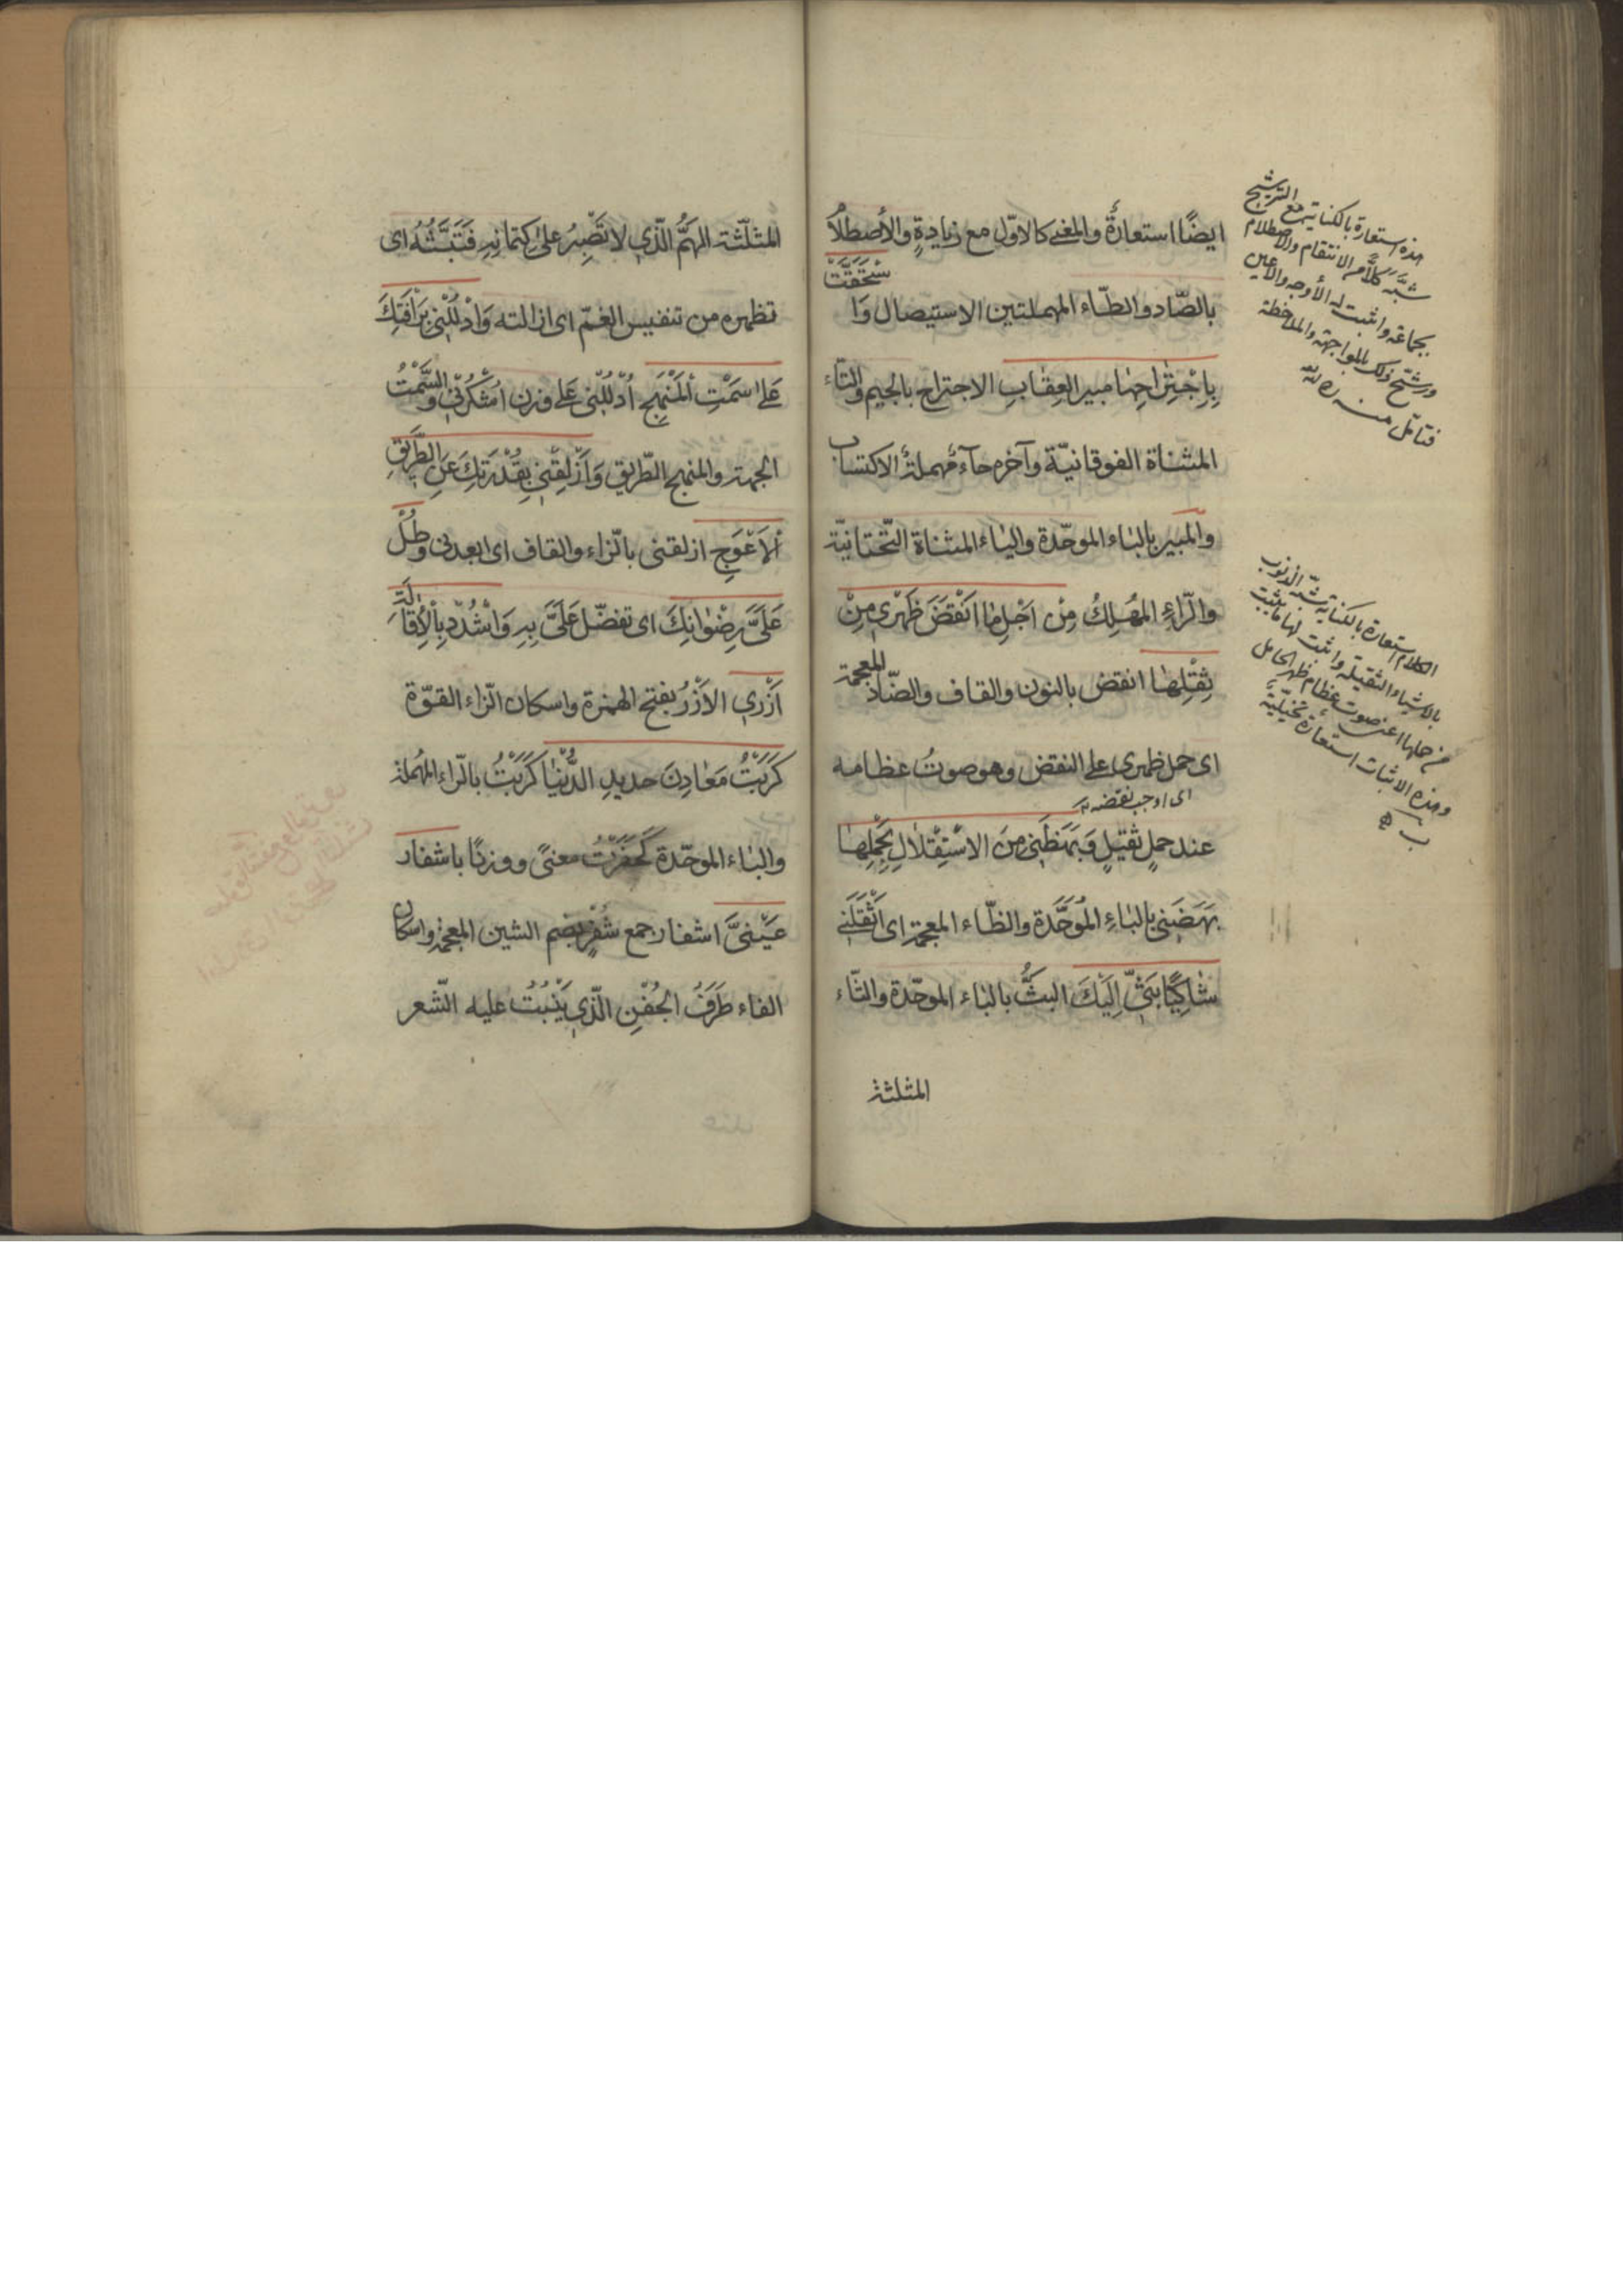 ايضًا استعارةٌ والمعنى كالاوّل مع زيادةٍ والأصطلاُ
بالصّاد والطّاء المهملتين الاستيصال وَا
سْتَحَقَّتْ
بِاِجْتِرٰاحِهٰا مبير العِقٰابِ الاجتراح بالجيم والتّاء
المثناة الفوقانيّة وآخره حآء مُهملةُ الاكتساب
والمبير بالبٰاء الموحّدة واليٰاء المثناة التّحتانيّة
والرّاءِ المُهْلِكُ مِنْ اَجْلِ مٰا اَنْقَضَ ظَهْرى مِنْ
ثِقْلِهٰا انقض بالنون والقاف والضّاد المعجمة
اى حمل ظهرى على النقض وهو صوتُ عظامه
اى اوجب نقضه
عند حملٍ ثقيلٍ وَبَهَظَنى مِنَ الاسْتِقْلالِ بِحَمْلِهٰا
بهَضَنى بالبٰاءِ المُوَحَّدَة والظّاء المعجمة اى اَثْقَلَنى
شٰاكِيًا بَثّى اِلَيْكَ البثُّ بالبٰاء الموحّدة والثّاء
المثلثة
هذه استعارة بالكناية مع الترشيح
شبّه كلاًّ من الانتقام والاصطلام
بجماعة واثبت له الأوجه والاعين
ورشّح ذلك بالمواجهة والملاحظة
فتأمّل منه ره
الكلام استعارة بالكناية شبّه الذنوب
بالاشياء الثقيلة واثبت لها ما يثبت
من حملها اعنى صوت عظام ظهر الحامل
وهذه الاثبات استعارة تخييليّة
المثلّثة الهمُّ الّذي لا تَصْبِرُ علىٰ كِتمانِهِ فَتَبُثُّهُ اى
تظهره من تنفيس الغمّ اى ازالته وَادْلُلْنى بِرَأفَتِكَ
عَلىٰ سَمْتِ الْمَنْهَجِ اُدْلُلْنى عَلى وزن اُشْكُرْنى والسَّمْتُ
الجهة والمنهج الطّريق وَاَزْلِقْنى بِقُدْرَتِكَ عَنِ الطَّرَيقِ
الْاَعْوَجِ ازلقنى بالزّاء والقاف اى ابعدنى وطُلْ
عَلَىَّ رِضْوٰانِكَ اى تفضّل عَلَىَّ بِهِ وَاشْدُدْ بِالْاِقٰالَةِ
اَزْرى الاَزْرُ بفتح الهمزة واسكان الزّاء القوّة
كَرَبْتُ مَعٰادِنَ حديدِ الدُّنْيٰا كَرَبْتُ بالرّاء المُهملة
والبٰاء الموحّدة كَحَفَرْتُ معنىً ووزنًا باشفار
عَيْنىَّ اشفار جمع شُفْرٍ بضم الشين المعجمة واسكان
الفاء طَرَفُ الجُفْنِ الّذي يَنْبُتُ عليه الشّعر